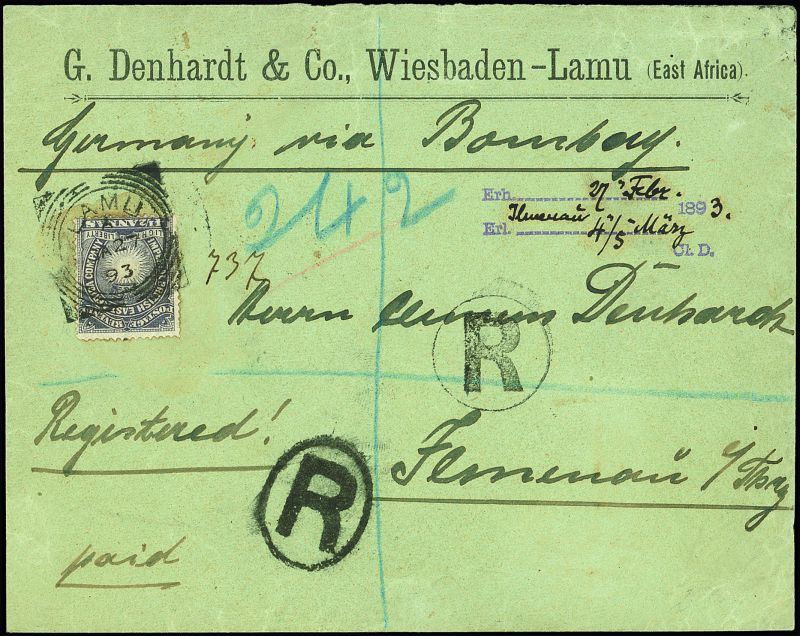 G. Denhardt & Co., Wiesbaden-Lamu (East Africa).
Germany via Bombay.
242
Erh. 27 Febr. 1893.
Ilmenau
Erl. 4/5 März
Cl. D.
LAMU
A 27
93
ANNAS
LIGHT & LIBERTY
IMPERIAL BRITISH EAST AFRICA COMPANY
POSTAGE & REVENUE
737
Herrn Clemens Denhardt
R
Registered!
R
Ilmenau i/Thrg
paid